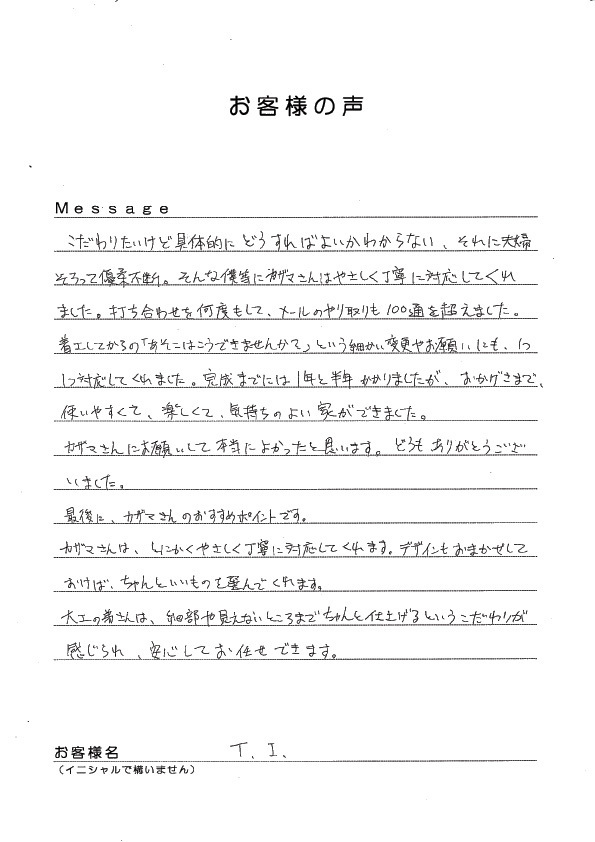 お客様の声
Message
こだわりたいけど具体的にどうすればよいかわからない、それに夫婦
そろって優柔不断。そんな僕等にカザマさんはやさしく丁寧に対応してくれ
ました。打ち合わせを何度もして、メールのやり取りも100通を超えました。
着工してからの「あそこはこうできませんか?」という細かい変更やお願いにも、1つ
1つ対応してくれました。完成までには1年と半年かかりましたが、おかげさまで、
使いやすくて、楽しくて、気持ちのよい家ができました。
カザマさんにお願いして本当によかったと思います。どうもありがとうござ
いました。
最後に、カザマさんのおすすめポイントです。
カザマさんは、とにかくやさしく丁寧に対応してくれます。デザインもおまかせして
おけば、ちゃんといいものを選んでくれます。
大工の着さんは、細部や見えないところまでちゃんと仕上げるというこだわりが
感じられ、安心してお任せできます。
お客様名 T.I.
(イニシャルで構いません)